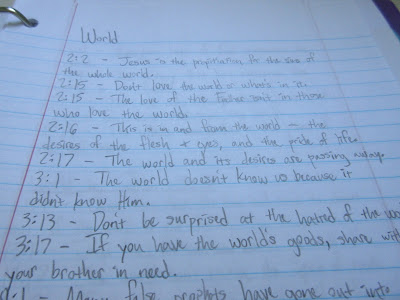 World
2:2 - Jesus is the propitiation for the sins of
the whole world.
2:15 - Don't love the world or what's in it.
2:15 - The love of the Father isn't in those
who love the world.
2:16 - This is in and from the world - the
desires of the flesh + eyes, and the pride of life.
2:17 - The world and its desires are passing away.
3:1 - The world doesn't know us because it
didn't know Him.
3:13 - Don't be surprised at the hatred of the
3:17 - If you have the world's goods, share with
your brother in need.
:1 - Many false prophets have gone out into